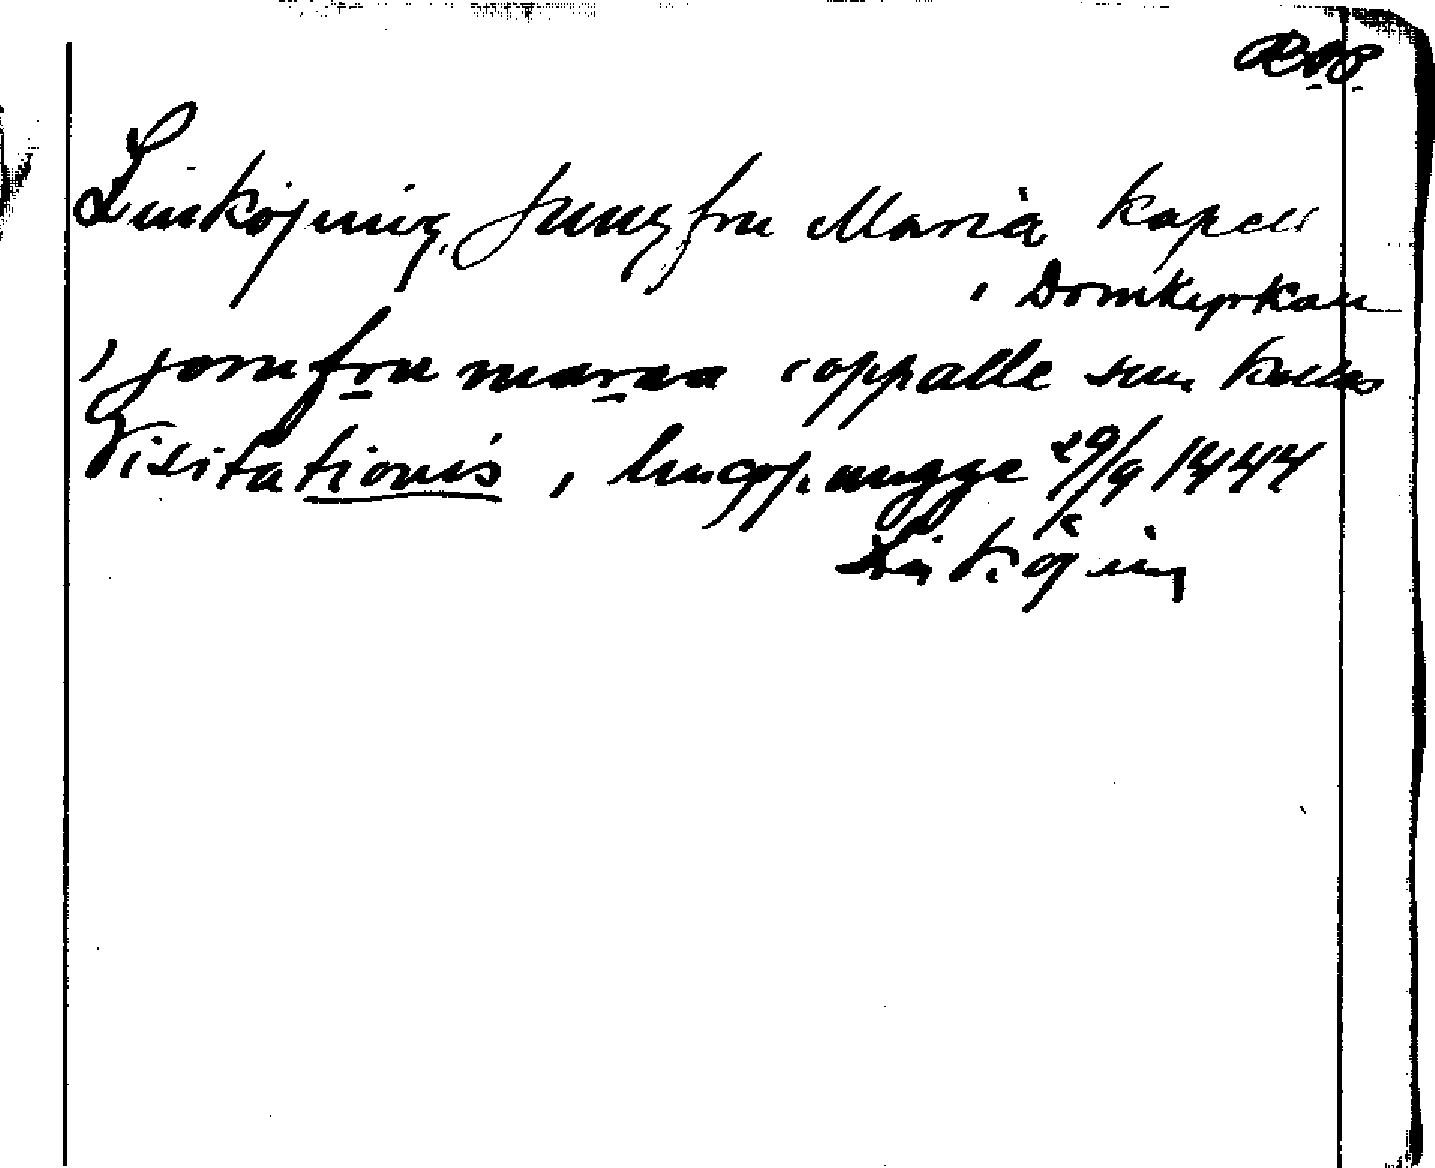 Linköping, Jungfru Maria Kapell
i Domkyrkan
i jomfru maraa cappalle som kallas
Visitationis i lincopungge 29/9 1444
Linköping